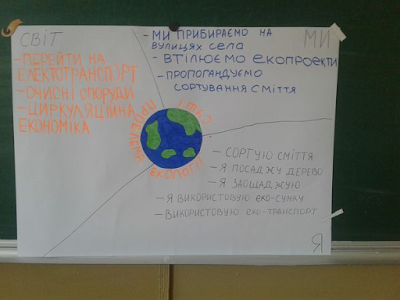 СВІТ
- ПЕРЕЙТИ НА
ЕЛЕКТОТРАНСПОРТ
- ОЧИСНІ СПОРУДИ
- ЦИРКУЛЯЦІЙНА
ЕКОНОМІКА
МИ
- МИ ПРИБИРАЄМО НА
ВУЛИЦЯХ СЕЛА
- ВТІЛЮЄМО ЕКОПРОЕКТИ
- ПРОПОГАНДУЄМО
СОРТУВАННЯ СМІТТЯ
ЕКОЛОГІЇ
- СОРТУЮ СМІТТЯ
- Я ПОСАДЖУ ДЕРЕВО
- Я ЗАОЩАДЖУЮ
- Я ВИКОРИСТОВУЮ ЕКО-СУМКУ
- ВИКОРИСТОВУЮ ЕКО-ТРАНСПОРТ
Я